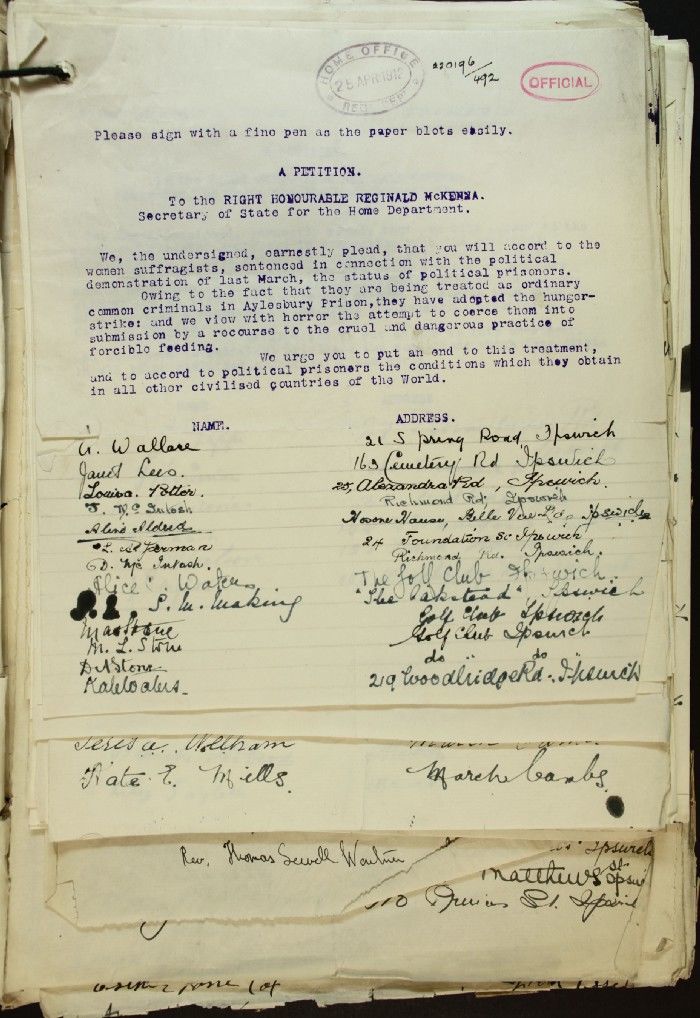 HOME OFFICE
25 APR 1912
220196/492
OFFICIAL
Please sign with a fine pen as the paper blots easily.
A PETITION.
To the RIGHT HONOURABLE REGINALD McKENNA.
Secretary of State for the Home Department.
We, the undersigned, earnestly plead, that you will accord to the
women suffragists, sentenced in connection with the political
demonstration of last March, the status of political prisoners.
Owing to the fact that they are being treated as ordinary
common criminals in Aylesbury Prison,they have adopted the hunger-
strike: and we view with horror the attempt to coerce them into
submission by a recourse to the cruel and dangerous practice of
forcible feeding.
We urge you to put an end to this treatment,
and to accord to political prisoners the conditions which they obtain
in all other civilised countries of the World.
NAME. ADDRESS.
Wallace 21 Spring Road, Ipswich
Janet Lees. 163 Cemetery Rd Ipswich
Louisa. Potter. 25, Alexandra Rd, Ipswich.
Mc Intosh Richmond Rd; Ipswich
House, Belle Vue Rd, Ipswich
24 Foundation St Ipswich
Mc Intosh. Richmond Rd. Ipswich.
Alice Waters The Golf Club Ipswich.
S. M. Making "The Oakstead", Ipswich
Golf Club Ipswich
M. L. Stone Golf Club Ipswich
D. N Stone do " do
Kate Waters 29 Woodbridge Rd. Ipswich
Teresa. Welham
Kate E. Mills. March Cambs
Rev. Thomas Sewell Ipswich
Matthews St. Ipsw
St. Ipswich